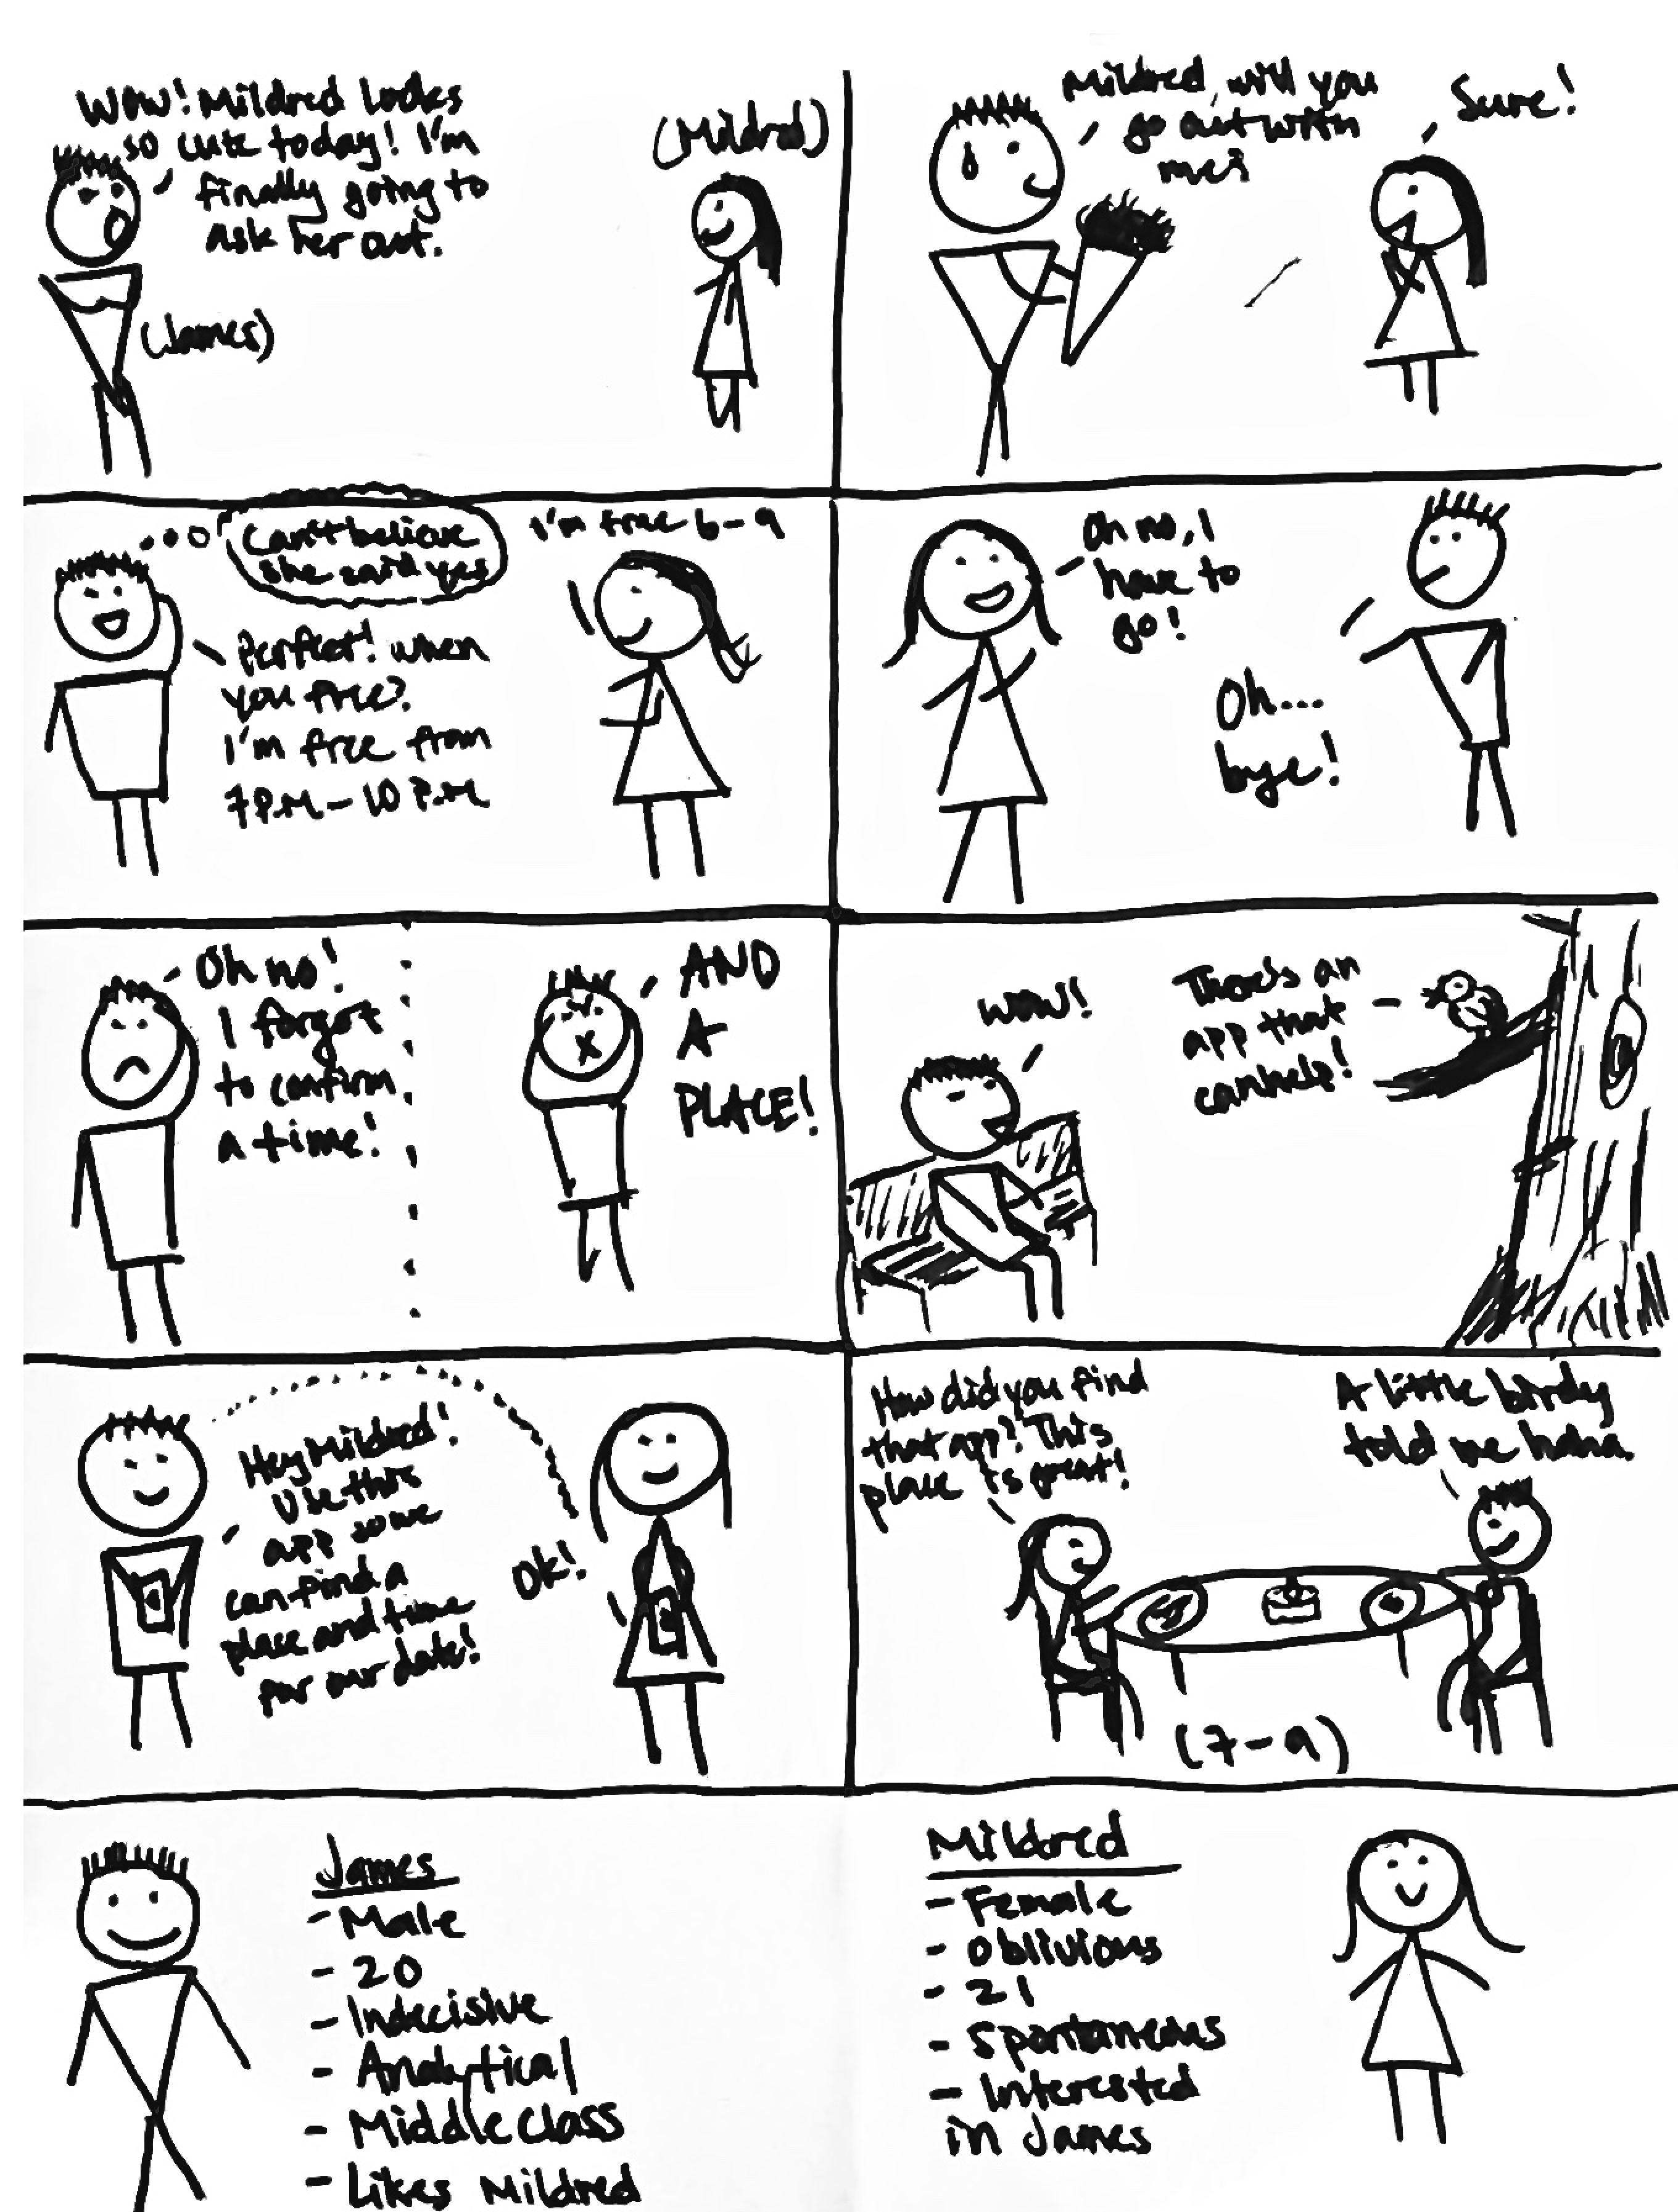 Wow! Mildred looks
so cute today! I'm
finally going to
ask her out.
(James)
(Mildred)
Mildred, will you
go out with
me?
Sure!
Can't believe
she said yes
Perfect! when
you free?
I'm free from
7 P.M - 10 P.M
I'm free 6-9
Oh no, I
have to
go!
Oh....
bye!
Oh no!
I forgot
to confirm
a time!
AND
A
PLACE!
WOW!
There's an
app that
can help!
Hey Mildred!
Use this
app so we
can find a
place and time
for our date!
Ok!
How did you find
that app? This
place is great!
A little birdy
told me haha
(7-9)
James
- Male
- 20
- Indecisive
- Analytical
- Middle Class
- Likes Mildred
Mildred
- Female
- Oblivious
- 21
- Spontaneous
- Interested
in James